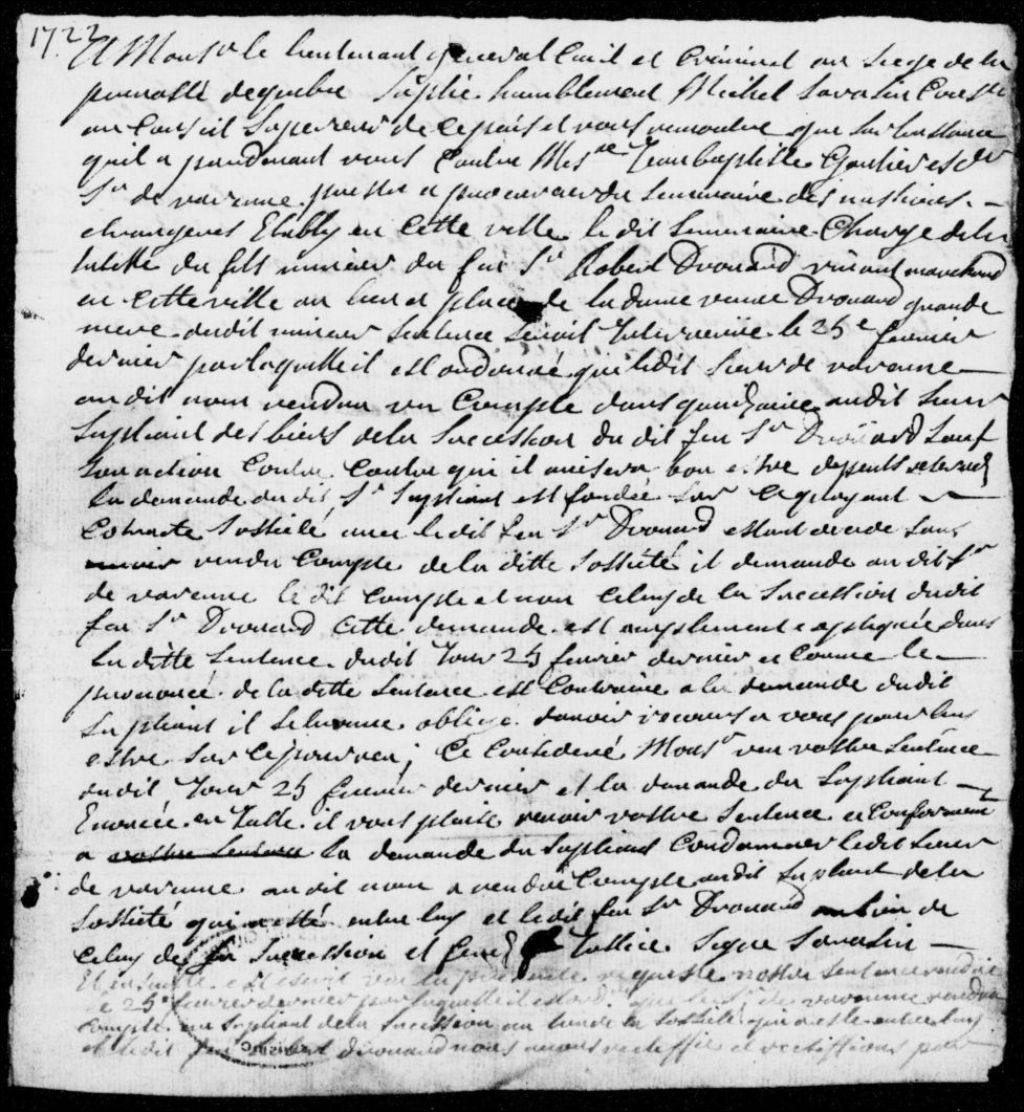 1722
A Monsr le lieutenant general Civil et Criminel au Siege de la
prevosté de quebec Suplie humblement Michel Sarasin Conser
au Conseil Superieur de ce pais et vous remontre que sur linstance
quil a pendenant vous Contre Mesre Jean baptiste Gautier esc
Sr de varenne prestre et procureur du Seminaire des missions
etrangeres Etably en Cette ville le dit Seminaire Charge de la
tutelle du fils mineur du feu Sr Robert Drouard vivant marchand
en cette ville au lieu et place de la dame veuve Drouard grande
mere dudit mineur Sentence Seroit Intervenüe le 25e fevrier
dernier par laquelle il est ordonné que ledit Sieur de varenne
audit nom rendra un Compte dans quinzaine audit Sieur
Supliant des biens de la Succession du dit feu Sr Droüard Sauf
son action Contre Contre qui il avisera bon estre depents reservez
la demande du dit Sr Supliant est fondée Sur ce quayant
Contracté Sossieté avec le dit feu Sr Drouard estant decedé Sans
avoir rendu Compte de la ditte Sossieté il demande au dit Sr
de varenne le dit Compte et non Celuy de la Succession dudit
feu Sr Drouard Cette demande est amplement expliquée dans
la ditte Sentence dudit Jour 25 fevrier dernier et Comme le
prononcé de la ditte Sentence est Contraire a la demande dudit
Supliant il Se trouve obligé davoir recours a vous pour luy
estre Sur ce pourveu; Ce Consideré Monsr veu vostre Sentence
dudit Jour 25 fevrier dernier et la demande du Supliant
Enoncée en Icelle il vous plaise revoir vostre Sentence et Conformement
a vostre Sentence la demande du Supliant Condamner ledit Sieur
de varenne audit nom a rendre Compte audit Supliant de la
Sossieté qui a esté entre luy et ledit feu Sr Drouard au lieu de
Celuy de la Succession et ferez Justice Signé Sarasin
Et ensuite est escrit veu la presente requeste nostre Sentence rendüe
le 25e fevrier dernier par laquelle il est ord. que le Sr de varenne rendra
Compte au Supliant de la Succession au lieu de la Sossieté qui a esté entre luy
et ledit feu Robert drouard nous avons rectiffié et rectiffions pour